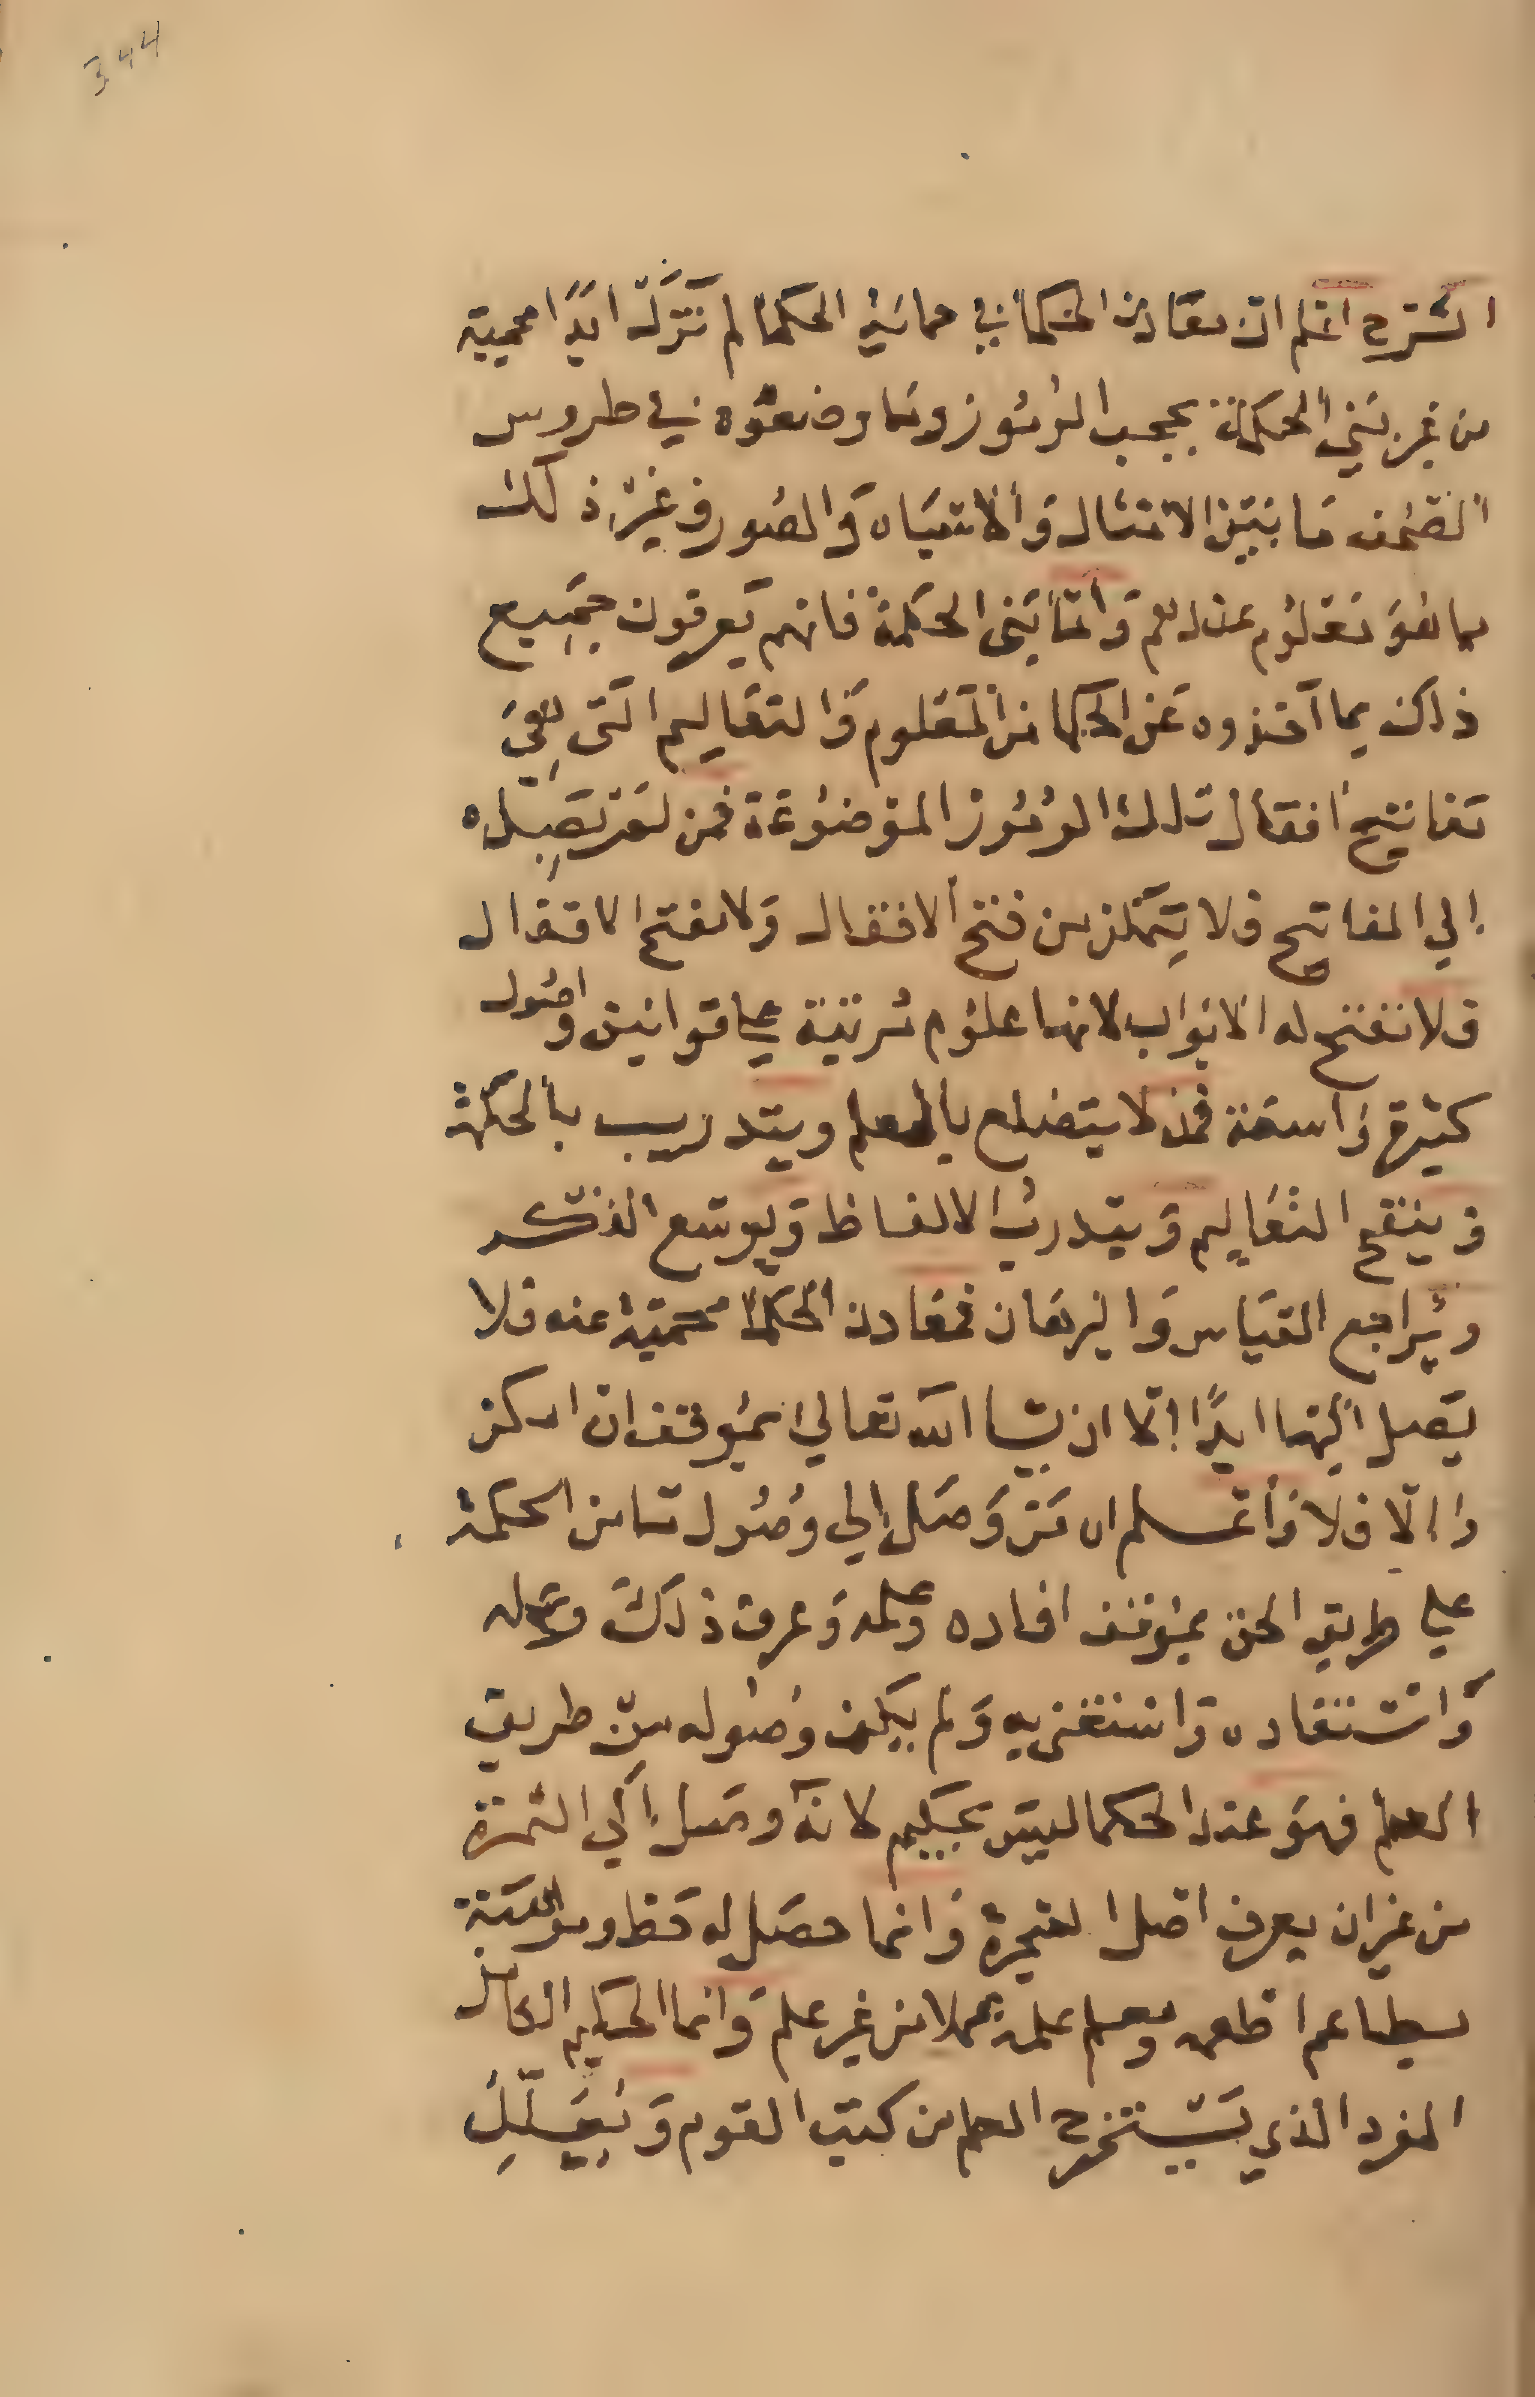 344
الشرح اعلم ان معادن الحكما في حماية الحكما لم تزل ابدًا محمية
من غير بني الحكمة بحجب الرموز وما وضعوه في طروس
الصحف ما بين الامثال والاشباه والصور وغير ذلك
مما هو معلوم عندهم وَامّا بني الحكمة فانهم يعرفون جميع
ذلك بما اخذوه عن الحكما من العلوم وَالتعاليم التي هي
مفاتيح اقفال تلك الرموز الموضوعة فمن لم يصل
الي المفاتيح فلا يتمكن من فتح الاقفال وَلا يفتح الاقفال
فلا تفتح له الابواب لانها علوم مرتبة علي قوانين واصول
كثيرة واسعة فمن لا يتضلع بالعلم ويتدرب بالحكمة
وينقح التعاليم ويتدرب الالفاظ وَيوسّع الفكر
ويراجع القياس وَالبرهان فمعادن الحكما محمية عنه فلا
يصل اليها ابدًا الّا ان يشا الله تعالي بموقف ان امكن
وَالّا فلا وَاعلم ان من وَصَل الي وصُول تا من الحكمة
علي طريق الحق بموقف افاده وعلمه وَعرف ذلك وعمله
وَاستفاده وَاستغني به وَلم يكن وُصوله من طريق
العلم فهو عند الحكما ليس بحكيم لانه وصل الي الثمرة
من غير ان يعرف اصل الشجرة وَانما حصل له حظ و
بطاعم اطعمه وبعلم علمه عملا من غير علم وَانما الحكيم الكامل
الفرد الذي يَستخرج العلم من كتب القوم وَ